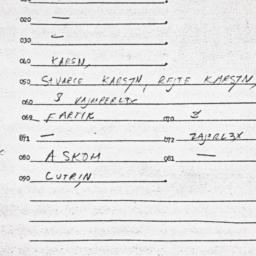 020 —
030 —
040 KARSN,
050 SQUARCE KARSTN, REJTE KARSTN,
060 3
062 FARTIK 070 3
071 — 072
080 ASKOM 081 —
090 CUTRIN